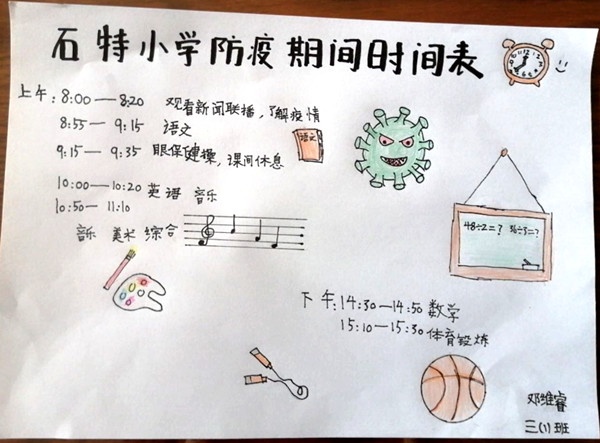 石特小学防疫期间时间表
上午:8:00—8:20 观看新闻联播,了解疫情
8:55—9:15 语文
语文
9:15—9:35 眼保健操,课间休息
10:00—10:20 英语 音乐
10:50—11:10
音乐 美术 综合
48÷2=? 36÷3=?
下午:14:30—14:50 数学
15:10—15:30 体育锻炼
邓维睿
三(1)班